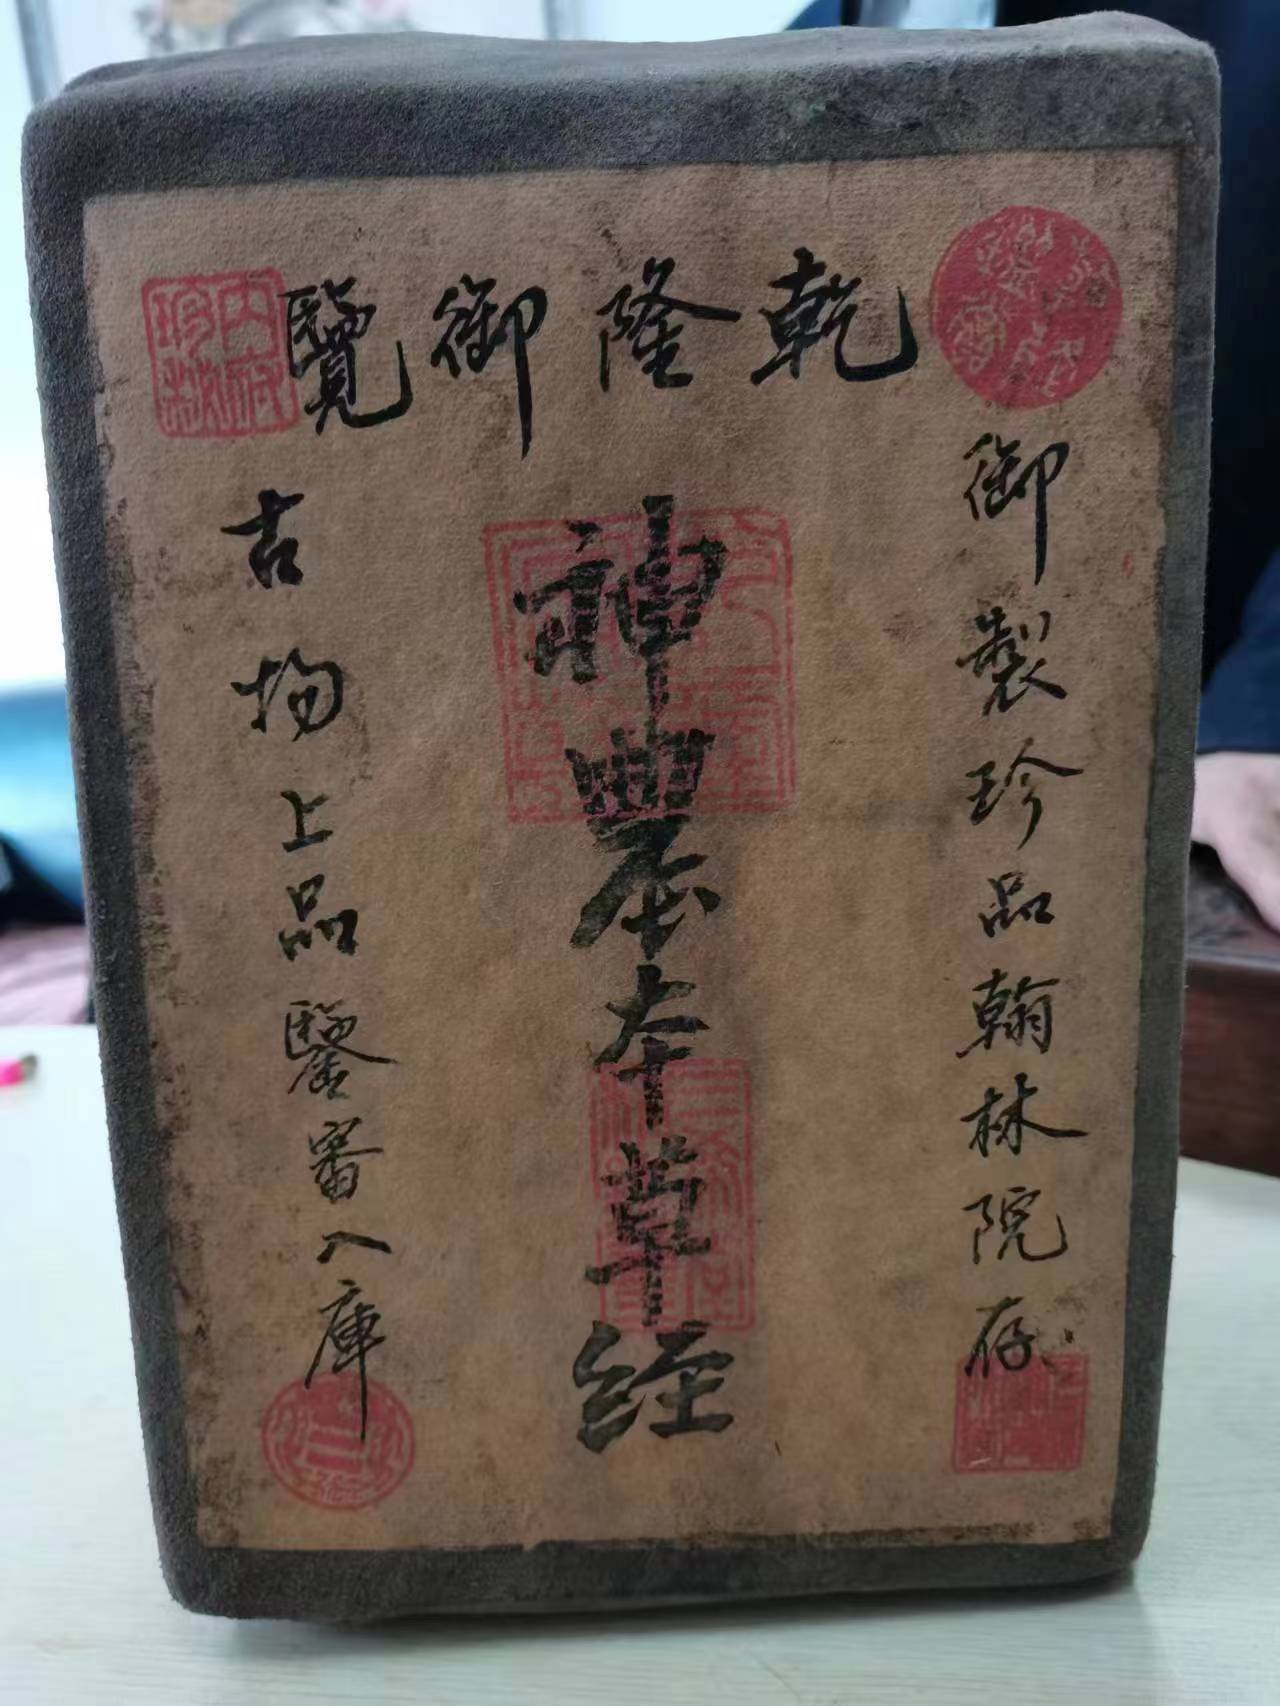 乾隆御覽
御製珍品翰林院存
神農本草經
古物上品鑒審入庫